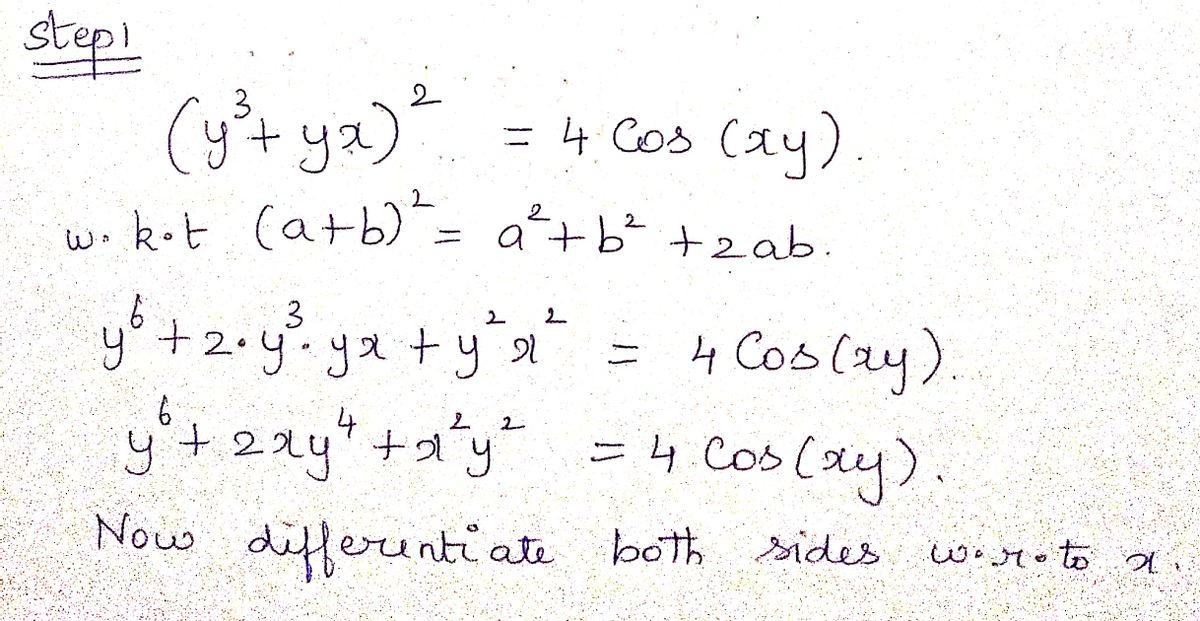 step1
(y³+ yx)² = 4 Cos (xy).
w.k.t (a+b)² = a²+b² +2ab.
y⁶+2·y³·yx + y²x² = 4 Cos(xy).
y⁶+ 2xy⁴ +x²y² = 4 Cos(xy).
Now differentiate both sides w.r.to x.